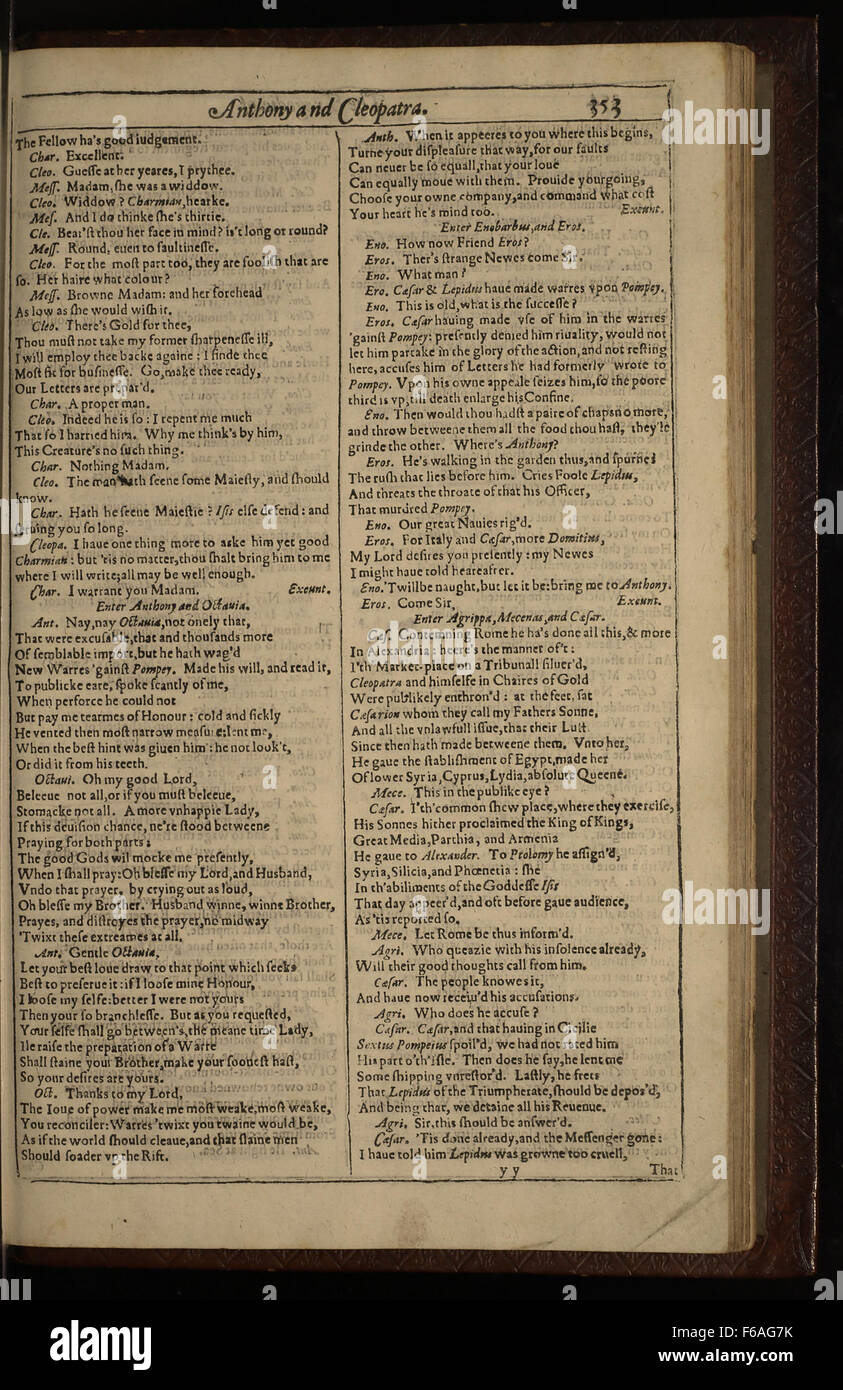 Anthony and Cleopatra. 353
The Fellow ha's good iudgement.
Char. Excellent.
Cleo. Guesse at her yeares, I prythee.
Mess. Madam, she was a widdow.
Cleo. Widdow? Charmian, hearke.
Mes. And I do thinke she's thirtie.
Cle. Bear'st thou her face in mind? is't long or round?
Mess. Round, euen to faultinesse.
Cleo. For the most part too, they are foolish that are
so. Her haire what colour?
Mess. Browne Madam: and her forehead
As low as she would wish it.
Cleo. There's Gold for thee,
Thou must not take my former sharpenesse ill,
I will employ thee backe againe: I finde thee
Most fit for businesse. Go, make thee ready,
Our Letters are prepar'd.
Char. A proper man.
Cleo. Indeed he is so: I repent me much
That so I harried him. Why me think's by him,
This Creature's no such thing.
Char. Nothing Madam.
Cleo. The man hath seene some Maiesty, and should
know.
Char. Hath he seene Maiestie? Isis else defend: and
seruing you so long.
Cleopa. I haue one thing more to aske him yet good
Charmian: but 'tis no matter, thou shalt bring him to me
where I will write; all may be well enough.
Char. I warrant you Madam. Exeunt.
Enter Anthony and Octauia.
Ant. Nay, nay Octauia, not onely that,
That were excusable, that and thousands more
Of semblable import, but he hath wag'd
New Warres 'gainst Pompey. Made his will, and read it,
To publicke eare, spoke scantly of me,
When perforce he could not
But pay me tearmes of Honour: cold and sickly
He vented then most narrow measure: lent me,
When the best hint was giuen him: he not look't,
Or did it from his teeth.
Octaui. Oh my good Lord,
Beleeue not all, or if you must beleeue,
Stomacke not all. A more vnhappie Lady,
If this deuision chance, ne're stood betweene
Praying for both parts:
The good Gods wil mocke me presently,
When I shall pray: Oh blesse my Lord, and Husband,
Vndo that prayer, by crying out as loud,
Oh blesse my Brother. Husband winne, winne Brother,
Prayes, and distroyes the prayer, no midway
'Twixt these extreames at all.
Ant. Gentle Octauia,
Let your best loue draw to that point which seeks
Best to preserue it: if I loose mine Honour,
I loose my selfe: better I were not yours
Then your so branchlesse. But as you requested,
Your selfe shall go between's, the meane time Lady,
Ile raise the preparation of a Warre
Shall staine your Brother, make your soonest hast,
So your desires are yours.
Oct. Thanks to my Lord,
The Ioue of power make me most weake, most weake,
You reconciler: Warres 'twixt you twaine would be,
As if the world should cleaue, and that slaine men
Should soader vp the Rift.
Anth. When it appeeres to you where this begins,
Turne your displeasure that way, for our faults
Can neuer be so equall, that your loue
Can equally moue with them. Prouide your going,
Choose your owne company, and command what cost
Your heart he's mind too. Exeunt.
Enter Enobarbus, and Eros.
Eno. How now Friend Eros?
Eros. Ther's strange Newes come Sir.
Eno. What man?
Ero. Cæsar & Lepidus haue made warres vpon Pompey.
Eno. This is old, what is the successe?
Eros. Cæsar hauing made vse of him in the warres
'gainst Pompey: presently denied him riuality, would not
let him partake in the glory of the action, and not resting
here, accuses him of Letters he had formerly wrote to
Pompey. Vpon his owne appeale seizes him, so the poore
third is vp, till death enlarge his Confine.
Eno. Then would thou hadst a paire of chaps no more,
and throw betweene them all the food thou hast, they'le
grinde the other. Where's Anthony?
Eros. He's walking in the garden thus, and spurnes
The rush that lies before him. Cries Foole Lepidus,
And threats the throate of that his Officer,
That murdred Pompey.
Eno. Our great Nauies rig'd.
Eros. For Italy and Cæsar, more Domitius,
My Lord desires you presently: my Newes
I might haue told heareafter.
Eno. 'Twillbe naught, but let it be: bring me to Anthony.
Eros. Come Sir, Exeunt.
Enter Agrippa, Mecenas, and Cæsar.
Cæs. Contemning Rome he ha's done all this, & more
In Alexandria: heere's the manner of't:
I'th'Market-place on a Tribunall siluer'd,
Cleopatra and himselfe in Chaires of Gold
Were publikely enthron'd: at the feet, sat
Cæsarion whom they call my Fathers Sonne,
And all the vnlawfull issue, that their Lust
Since then hath made betweene them. Vnto her,
He gaue the stablishment of Egypt, made her
Of lower Syria, Cyprus, Lydia, absolute Queene.
Mece. This in the publike eye?
Cæsar. I'th'common shew place, where they exercise,
His Sonnes hither proclaimed the King of Kings,
Great Media, Parthia, and Armenia
He gaue to Alexander. To Ptolomy he assign'd,
Syria, Silicia, and Phœnetia: she
In th'abiliments of the Goddesse Isis
That day appeer'd, and oft before gaue audience,
As 'tis reported so.
Mece. Let Rome be thus inform'd.
Agri. Who queazie with his insolence already,
Will their good thoughts call from him.
Cæsar. The people knowes it,
And haue now receiu'd his accusations.
Agri. Who does he accuse?
Cæsar. Cæsar, and that hauing in Cicilie
Sextus Pompeius spoil'd, we had not rated him
His part o'th'Isle. Then does he say, he lent me
Some shipping vnrestor'd. Lastly, he frets
That Lepidus of the Triumpherate, should be depos'd,
And being that, we detaine all his Reuenue.
Agri. Sir, this should be answer'd.
Cæsar. 'Tis done already, and the Messenger gone:
I haue told him Lepidus was growne too cruell,
y y That
alamy
Image ID: F6AG7K
www.alamy.com